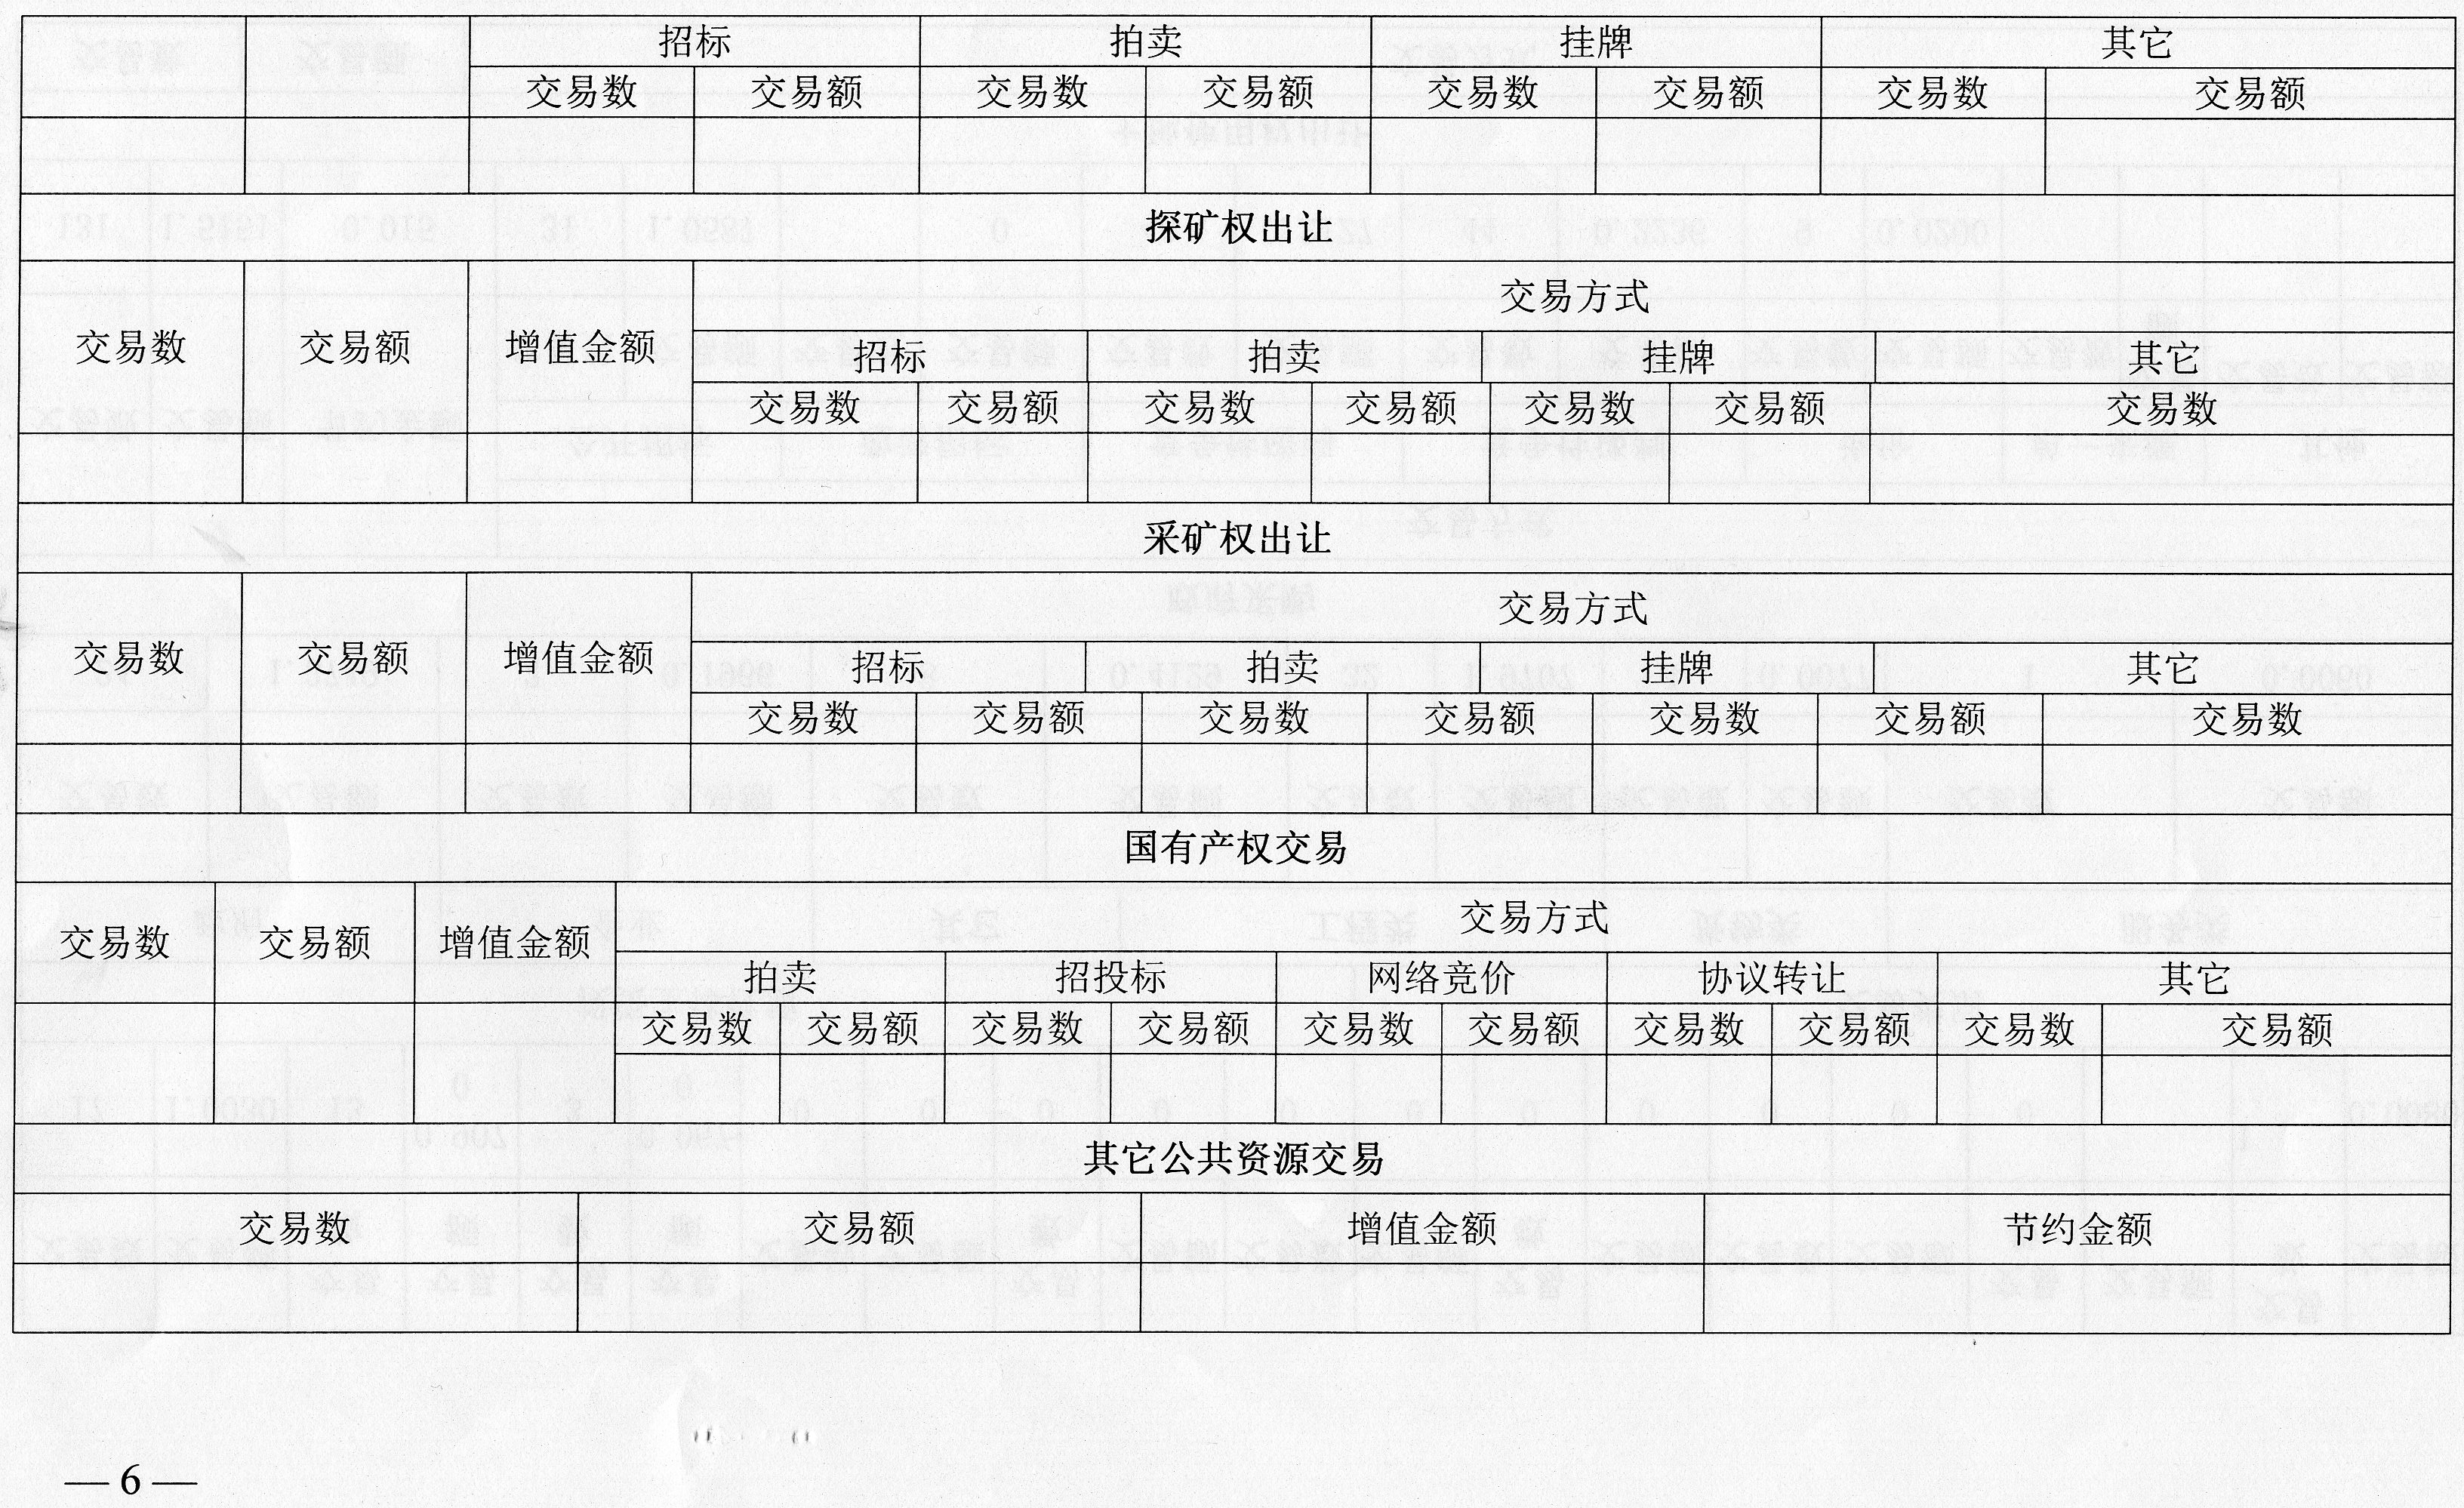 招标 拍卖 挂牌 其它
交易数 交易额 交易数 交易额 交易数 交易额 交易数 交易额
探矿权出让
交易数 交易额 增值金额 交易方式
招标 拍卖 挂牌 其它
交易数 交易额 交易数 交易额 交易数 交易额 交易数
采矿权出让
交易数 交易额 增值金额 交易方式
招标 拍卖 挂牌 其它
交易数 交易额 交易数 交易额 交易数 交易额 交易数
国有产权交易
交易数 交易额 增值金额 交易方式
拍卖 招投标 网络竞价 协议转让 其它
交易数 交易额 交易数 交易额 交易数 交易额 交易数 交易额 交易数 交易额
其它公共资源交易
交易数 交易额 增值金额 节约金额
— 6 —